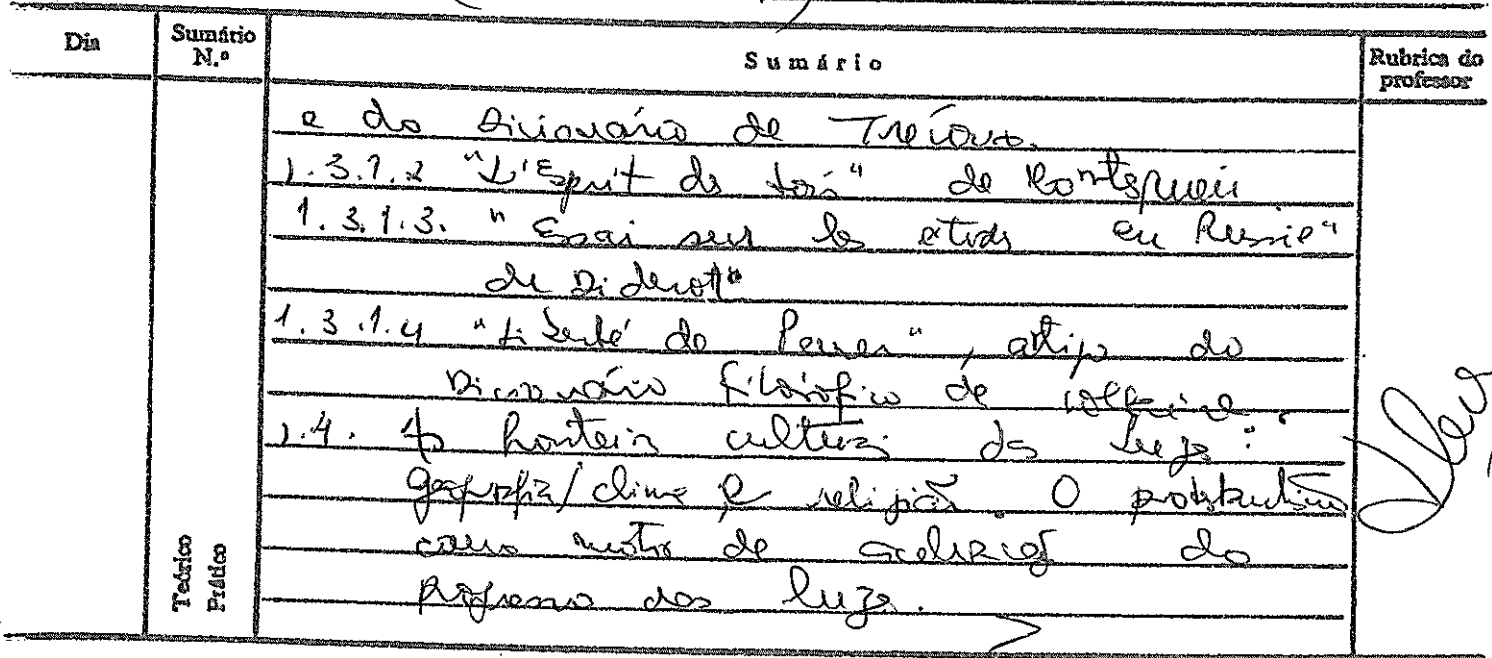 Dia
Sumário N.º
Sumário
Rubrica do professor
e do Dicionário de Trévoux.
1.3.1.2 "L'Esprit des Lois" de Montesquieu
1.3.1.3. "Essai sur les études en Russie"
de Diderot"
1.3.1.4 "Liberté de Penser", artigo do
Dicionário filosófico de Voltaire.
1.4. As fronteiras culturais das luzes:
geografia/clima e religião. O protestantismo
como motor de aceleração do
progresso das luzes.
Teórico
Prático